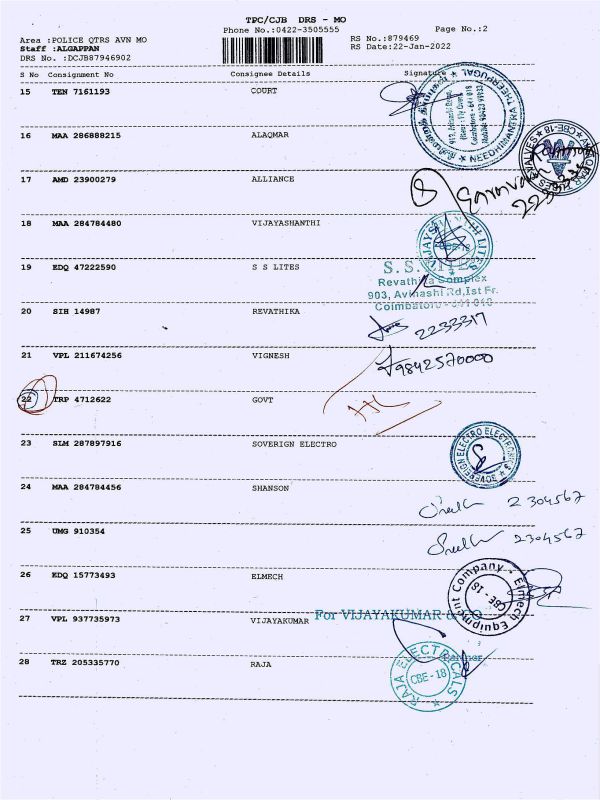 TPC/CJB DRS - MO
Phone No.:0422-3505555 Page No.:2
Area :POLICE QTRS AVN MO RS No.:879469
Staff :ALGAPPAN RS Date:22-Jan-2022
DRS No. :DCJB87946902
S No Consignment No Consignee Details Signature
15 TEN 7161193 COURT
16 MAA 286888215 ALAQMAR
17 AMD 23900279 ALLIANCE
18 MAA 284784480 VIJAYASHANTHI
19 EDQ 47222590 S S LITES
S.S. LITES
Revathika Complex
903, Avinashi Rd,Ist Fr.
Coimbatore - 641 018
20 SIH 14987 REVATHIKA
2233317
21 VPL 211674256 VIGNESH
9842570000
22 TRP 4712622 GOVT
23 SLM 287897916 SOVERIGN ELECTRO
SOVEREIGN ELECTRO ELECTRONICS
24 MAA 284784456 SHANSON
2304567
25 UMG 910354
2304567
26 EDQ 15773493 ELMECH
Elmech Equipment Company
CBE - 18
27 VPL 937735973 VIJAYAKUMAR For VIJAYAKUMAR & CO
Partner
28 TRZ 205335770 RAJA
RAJA ELECTRICALS
CBE - 18